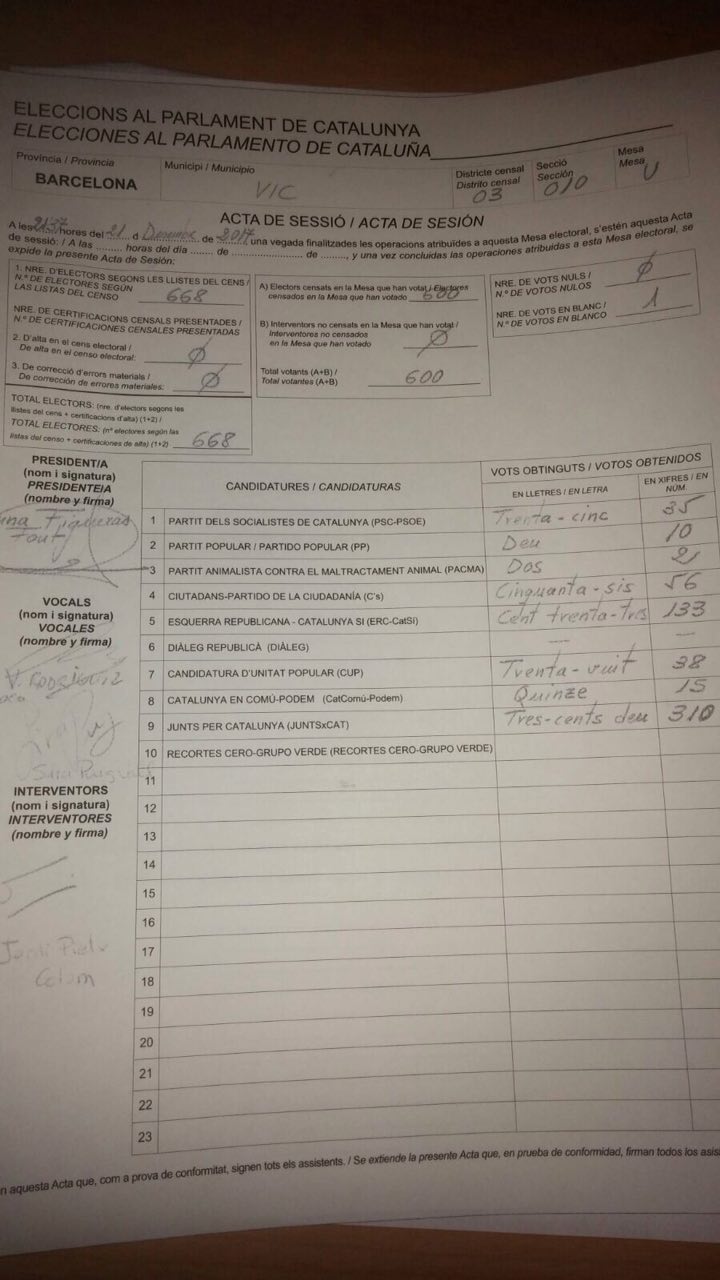 ELECCIONS AL PARLAMENT DE CATALUNYA
ELECCIONES AL PARLAMENTO DE CATALUÑA
Província / Provincia
BARCELONA
Municipi / Municipio
VIC
Districte censal
Distrito censal
03
Secció
Sección
010
Mesa
Mesa
U
ACTA DE SESSIÓ / ACTA DE SESIÓN
A les 21:37 hores del 21 d Desembre de 2017 una vegada finalitzades les operacions atribuïdes a aquesta Mesa electoral, s'estén aquesta Acta
de sessió: / A las ........ horas del día ........ de ........ de ........, y una vez concluidas las operaciones atribuidas a esta Mesa electoral, se
expide la presente Acta de Sesión:
1. NRE. D'ELECTORS SEGONS LES LLISTES DEL CENS /
N.º DE ELECTORES SEGÚN
LAS LISTAS DEL CENSO 668
NRE. DE CERTIFICACIONS CENSALS PRESENTADES /
N.º DE CERTIFICACIONES CENSALES PRESENTADAS
2. D'alta en el cens electoral /
De alta en el censo electoral: Ø
3. De correcció d'errors materials /
De corrección de errores materiales: Ø
TOTAL ELECTORS: (nre. d'electors segons les
llistes del cens + certificacions d'alta) (1+2) /
TOTAL ELECTORES: (nº electores según las
listas del censo + certificaciones de alta) (1+2) 668
A) Electors censats en la Mesa que han votat / Electores
censados en la Mesa que han votado 600
B) Interventors no censats en la Mesa que han votat /
Interventores no censados
en la Mesa que han votado Ø
Total votants (A+B) /
Total votantes (A+B) 600
NRE. DE VOTS NULS /
N.º DE VOTOS NULOS Ø
NRE. DE VOTS EN BLANC /
N.º DE VOTOS EN BLANCO 1
PRESIDENT/A
(nom i signatura)
PRESIDENTE/A
(nombre y firma)
Figueras
VOCALS
(nom i signatura)
VOCALES
(nombre y firma)
V. RODRIGUEZ
INTERVENTORS
(nom i signatura)
INTERVENTORES
(nombre y firma)
CANDIDATURES / CANDIDATURAS
VOTS OBTINGUTS / VOTOS OBTENIDOS
EN LLETRES / EN LETRA
EN XIFRES / EN NÚM.
1 PARTIT DELS SOCIALISTES DE CATALUNYA (PSC-PSOE) Trenta-cinc 35
2 PARTIT POPULAR / PARTIDO POPULAR (PP) Deu 10
3 PARTIT ANIMALISTA CONTRA EL MALTRACTAMENT ANIMAL (PACMA) Dos 2
4 CIUTADANS-PARTIDO DE LA CIUDADANÍA (C's) Cinquanta-sis 56
5 ESQUERRA REPUBLICANA - CATALUNYA SI (ERC-CatSí) Cent trenta-tres 133
6 DIÀLEG REPUBLICÀ (DIÀLEG) — —
7 CANDIDATURA D'UNITAT POPULAR (CUP) Trenta-vuit 38
8 CATALUNYA EN COMÚ-PODEM (CatComú-Podem) Quinze 15
9 JUNTS PER CATALUNYA (JUNTSxCAT) Tres-cents deu 310
10 RECORTES CERO-GRUPO VERDE (RECORTES CERO-GRUPO VERDE)
11
12
13
14
15
16
17
18
19
20
21
22
23
n aquesta Acta que, com a prova de conformitat, signen tots els assistents. / Se extiende la presente Acta que, en prueba de conformidad, firman todos los asis